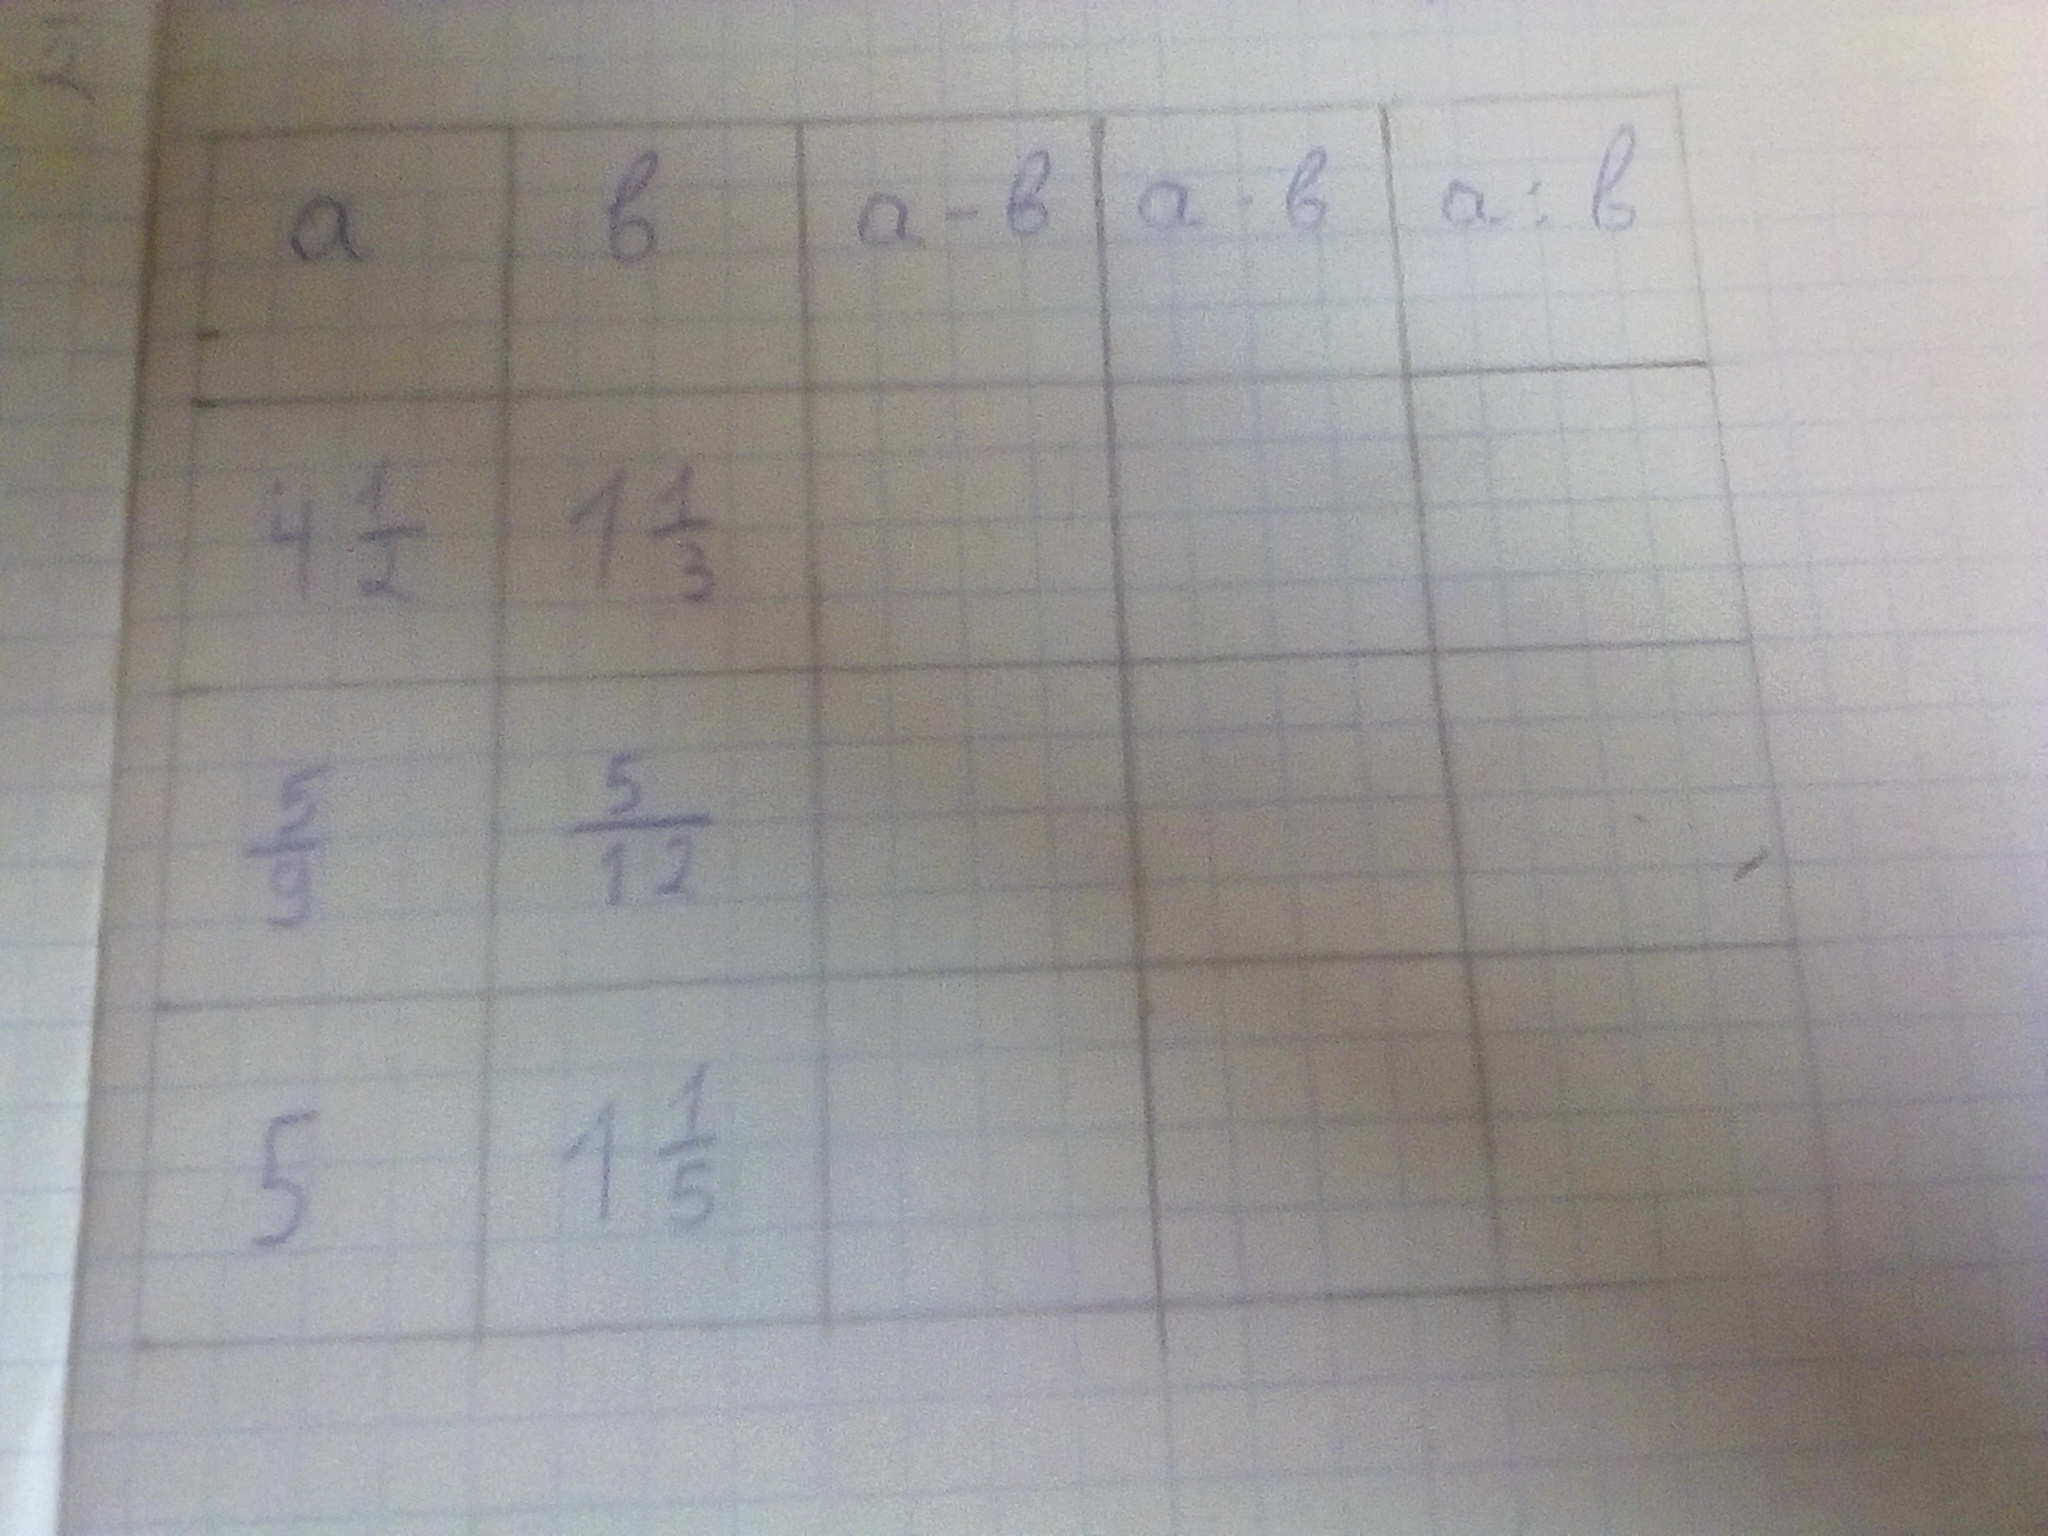 a в a - в a · в a : в
4 1/2 1 1/3
5/9 5/12
5 1 1/5